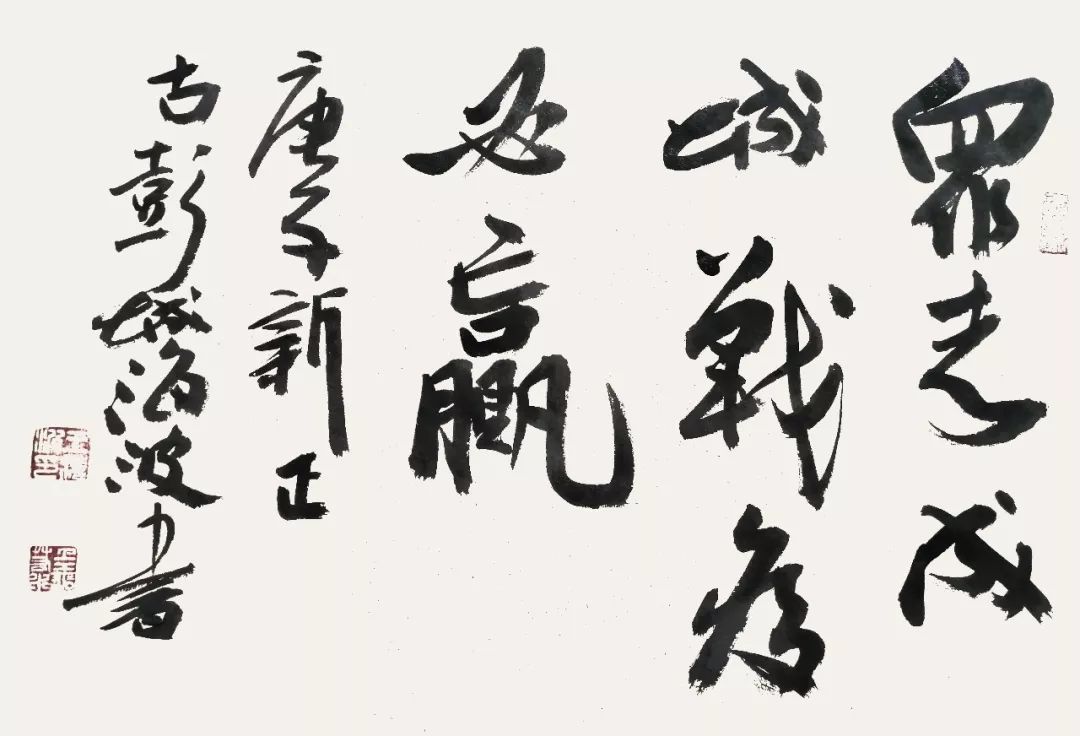 眾志成
城戰疫
必贏
庚子新正
古彭城海波書